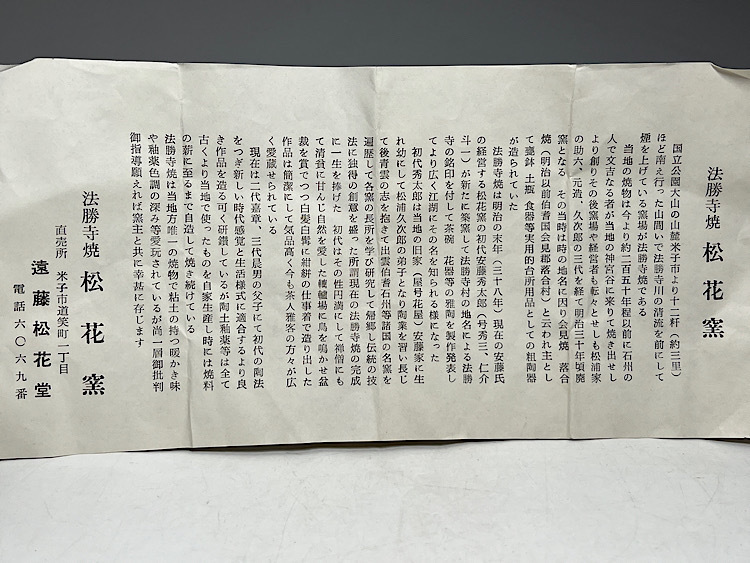 法勝寺焼 松花窯
国立公園大山の山麓米子市より十二粁(約三里)
ほど南え行った山間いで法勝寺川の清流を前にして
煙を上げている窯場が法勝寺焼である
当地の焼物は今より約二百五十年程以前に石州の
人で文吉なる者が当地の神宮谷に来りて焼き出せし
より創りその後窯場や経営者も転々とせしも松浦家
の助六、元造、久次郎の三代を経て明治三十年頃廃
窯となる その当時は時の地名に因り会見焼、落合
焼(明治以前伯耆国会見郡落合村)と云われ主とし
て甕鉢、土瓶、食器等実用的台所用品としての粗陶器
が造られていた
法勝寺焼は明治の末年(三十八年)現在の安藤氏
の経営する松花窯の初代安藤秀太郎(号秀三、仁介
斗一)が新たに築窯して法勝寺村の地名による法勝
寺の銘印を付して茶碗 花器等の雅陶を製作発表し
てより広く江湖にその名を知られる様になった
初代秀太郎は当地の旧家(屋号花屋)安藤家に生
れ幼にして松浦久次郎の弟子となり陶業を習い長じ
て後青雲の志を抱きて出雲伯耆石州等諸国の名窯を
遍歴して各窯の長所を学び研究して帰郷し伝統の技
法に独得の創意を盛った所謂現在の法勝寺焼の完成
に一生を捧げた 初代はその性円満にして禅僧にも
て清貧に甘んじ自然を愛した轆轤場に鳥を鳴かせ盆
裁を賞でつつ白髪白髯に紺絣の仕事着で造り出した
作品は簡潔にして気品高く今も茶人雅客の方々が広
く愛蔵せられている
現在は二代嘉章、三代晨男の父子にて初代の陶法
をつぎ新しい時代感覚と生活様式に適合するより良
き作品を造る可く研鑽しているが陶土釉薬等は全て
古くより当地で使ったものを自家生産し時には焼料
の薪に至るまで自造して焼き続けている
法勝寺焼は当地方唯一の焼物で粘土の持つ暖かき味
や釉薬色調の深み等愛玩されているが尚一層御批判
御指導願えれば窯主と共に幸甚に存じます
法勝寺焼 松花窯
直売所 米子市道笑町一丁目
遠藤松花堂
電話六〇六九番